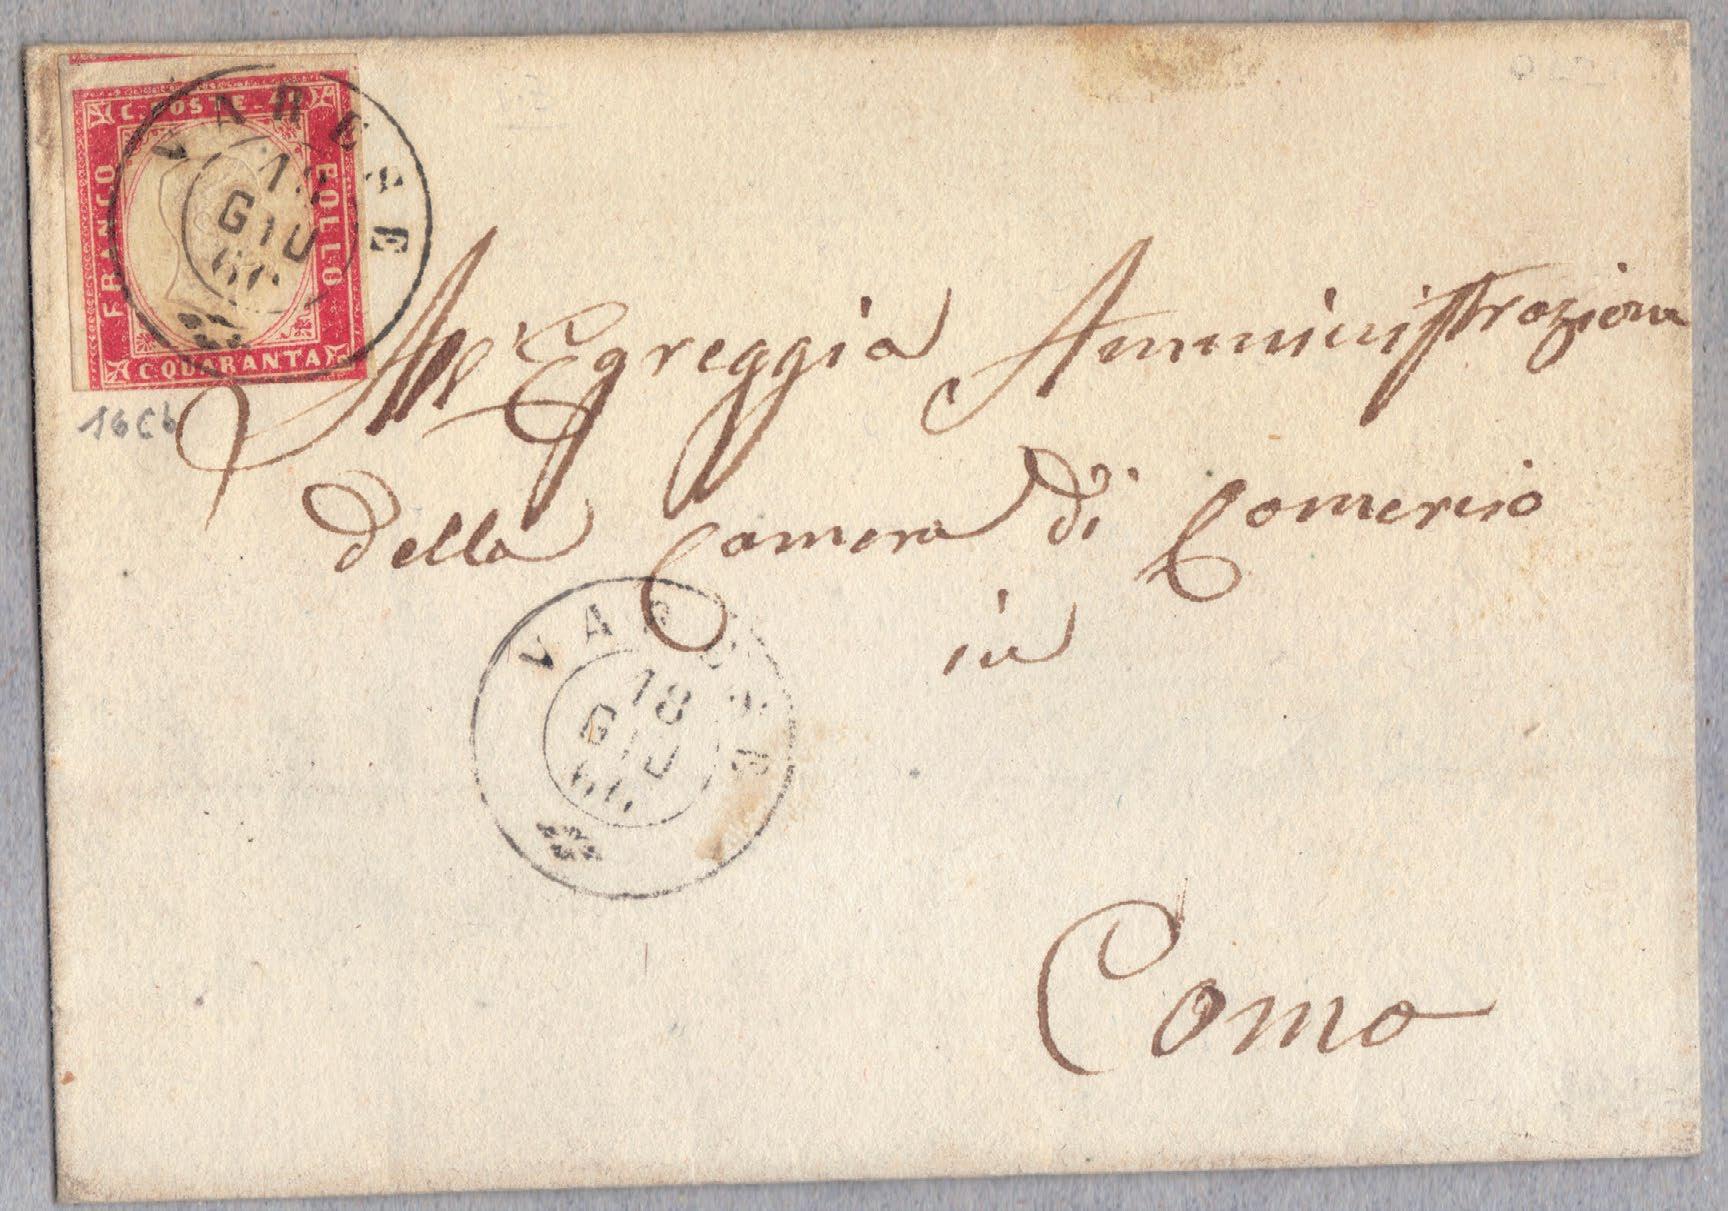 C. POSTE. 40
FRANCO
BOLLO
C. QUARANTA
VARESE
18
GIU
60
16Cb
All' Egreggia Amministrazione
della Camera di Comercio
in
VARESE
18
GIU
60
Como